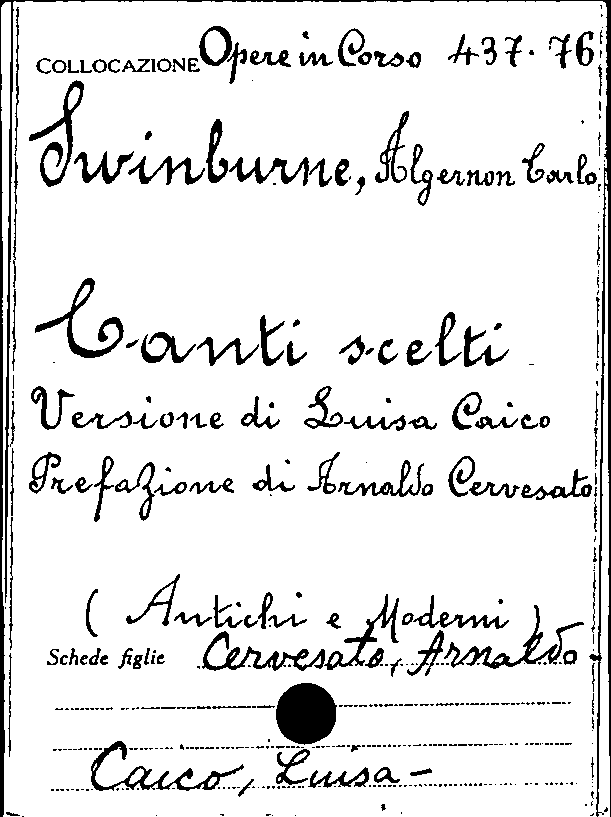 COLLOCAZIONE Opere in Corso 437.76
Swinburne, Algernon Carlo
Canti scelti
Versione di Luisa Caico
Prefazione di Arnaldo Cervesato
( Antichi e Moderni )
Schede figlie Cervesato, Arnaldo-
Caico, Luisa-